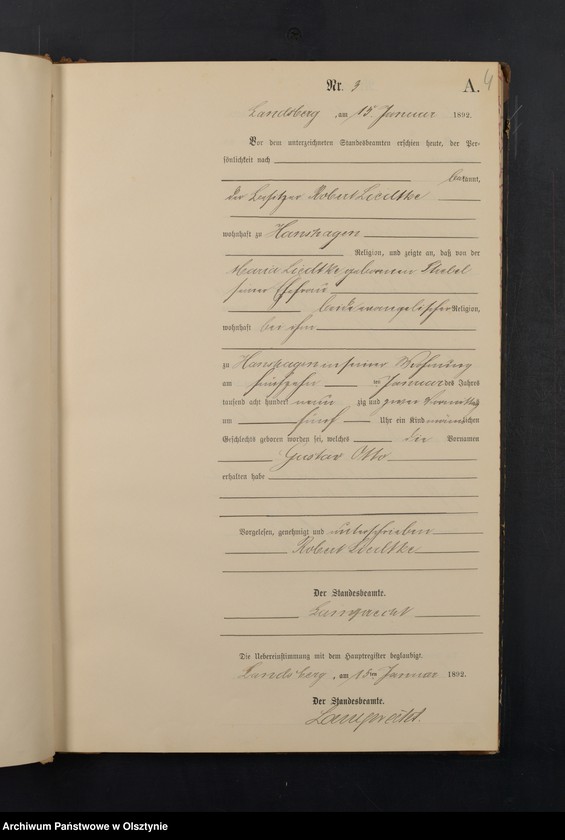 Nr. 3
A. 4
Landsberg, am 15. Januar 1892.
Vor dem unterzeichneten Standesbeamten erschien heute, der Per-
sönlichkeit nach
bekannt,
der Besitzer Robert Liedtke
wohnhaft zu Hanshagen
Religion, und zeigte an, daß von der
Maria Liedtke geborenen
seiner Ehefrau
beide evangelischer Religion,
wohnhaft bei ihm
zu Hanshagen in seiner Wohnung
am fünfzehn ten Januar des Jahres
tausend acht hundert neun zig und zwei Vormittags
um fünf Uhr ein Kind männlichen
Geschlechts geboren worden sei, welches die Vornamen
Gustav Otto
erhalten habe
Vorgelesen, genehmigt und unterschrieben
Robert Liedtke
Der Standesbeamte.
Lamprecht
Die Uebereinstimmung mit dem Hauptregister beglaubigt.
Landsberg, am 15ten Januar 1892.
Der Standesbeamte.
Lamprecht.
Archiwum Państwowe w Olsztynie